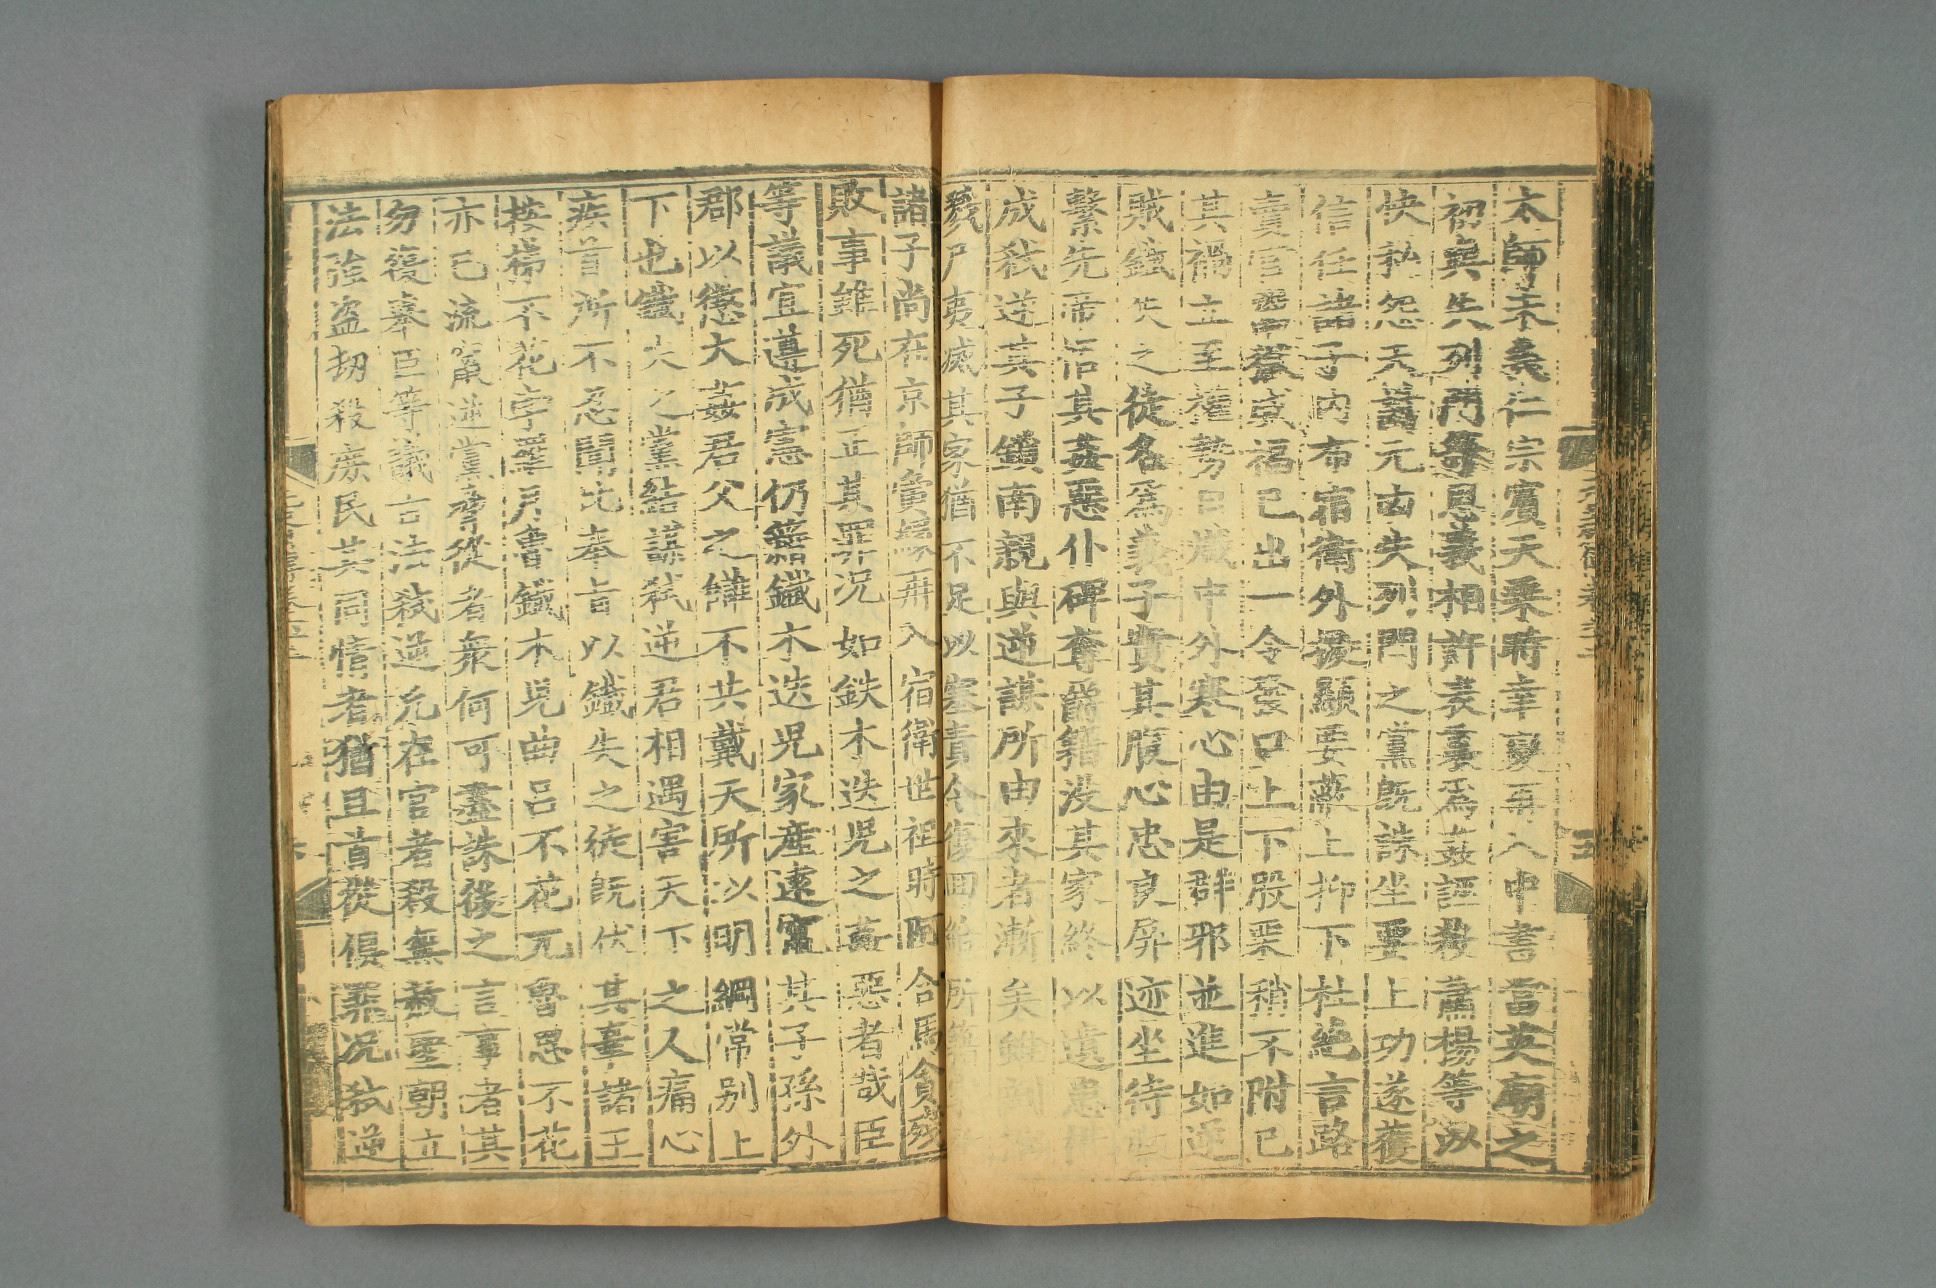 太師未幾仁宗賓天乗時幸變再入中書當英廟之
初與失列門等恩義相許表裏爲姦誣殺蕭楊等以
快私怨天討元凶失列門之黨旣誅坐要上功遂獲
信任諸子内布宿衛外據顯要蔽上抑下杜絶言路
賣官鬻獄威福已出一令發口上下股栗稍不附已
其禍立至權勢日熾中外寒心由是群邪並進如逆
賊鐵失之徒名爲義子實其腹心忠良屏迹坐待收
繫先帝悟其姦惡仆碑奪爵籍没其家終以遺患構
成弑逆其子鎖南親與逆謀所由來者漸矣雖剖棺
戮尸夷滅其家猶不足以塞責今復回給所籍家産
諸子尚在京師夤緣再入宿衛世祖時阿合馬貪殘
敗事雖死猶正其罪况如鉄木迭児之姦惡者哉臣
等議宜遵成憲仍籍鐵木迭児家產遠竄其子孫外
郡以懲大姦君父之讎不共戴天所以明綱常别上
下也鐵失之黨結謀弑逆君相遇害天下之人痛心
疾首所不忍聞比奉旨以鐵失之徒旣伏其辜諸王
按梯不花孛羅月魯鐵木児曲呂不花兀魯思不花
亦已流竄逆黨脅從者衆何可盡誅後之言事者其
勿復舉臣等議古法弑逆凡在官者殺無赦聖朝立
法強盗劫殺庶民其同情者猶且首從俱罪况弑逆